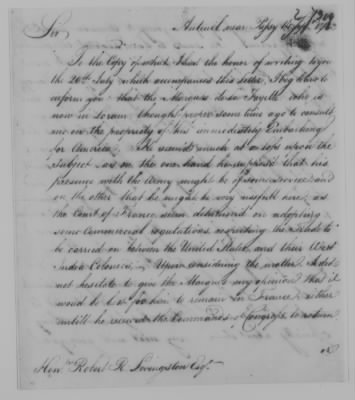 Sir Auteuil near Passy
To the Copy of which I had the honor of writing to you
the 20th July which accompanies this letter, I beg leave to
inform you that the Marquis de la Fayette who is
now in Lorain thought proper some time ago to consult
me on the propriety of his immediately Embarking
for America. He seemed much at a loss upon the
Subject, as on the one hand he supposed that his
presence with the Army might be of some service and
on the other that he might be very usefull here as
the Court of France were deliberating on adopting
some Commercial regulations respecting the Trade to
be carried on between the United States, and their West
India Colonies, Upon considering the matter I did
not hesitate to give the Marquis my opinion that it
would be best for him to remain in France, either
untill he received the Commands of Congress to return
or
Honble Robert R Livingston Esqr.